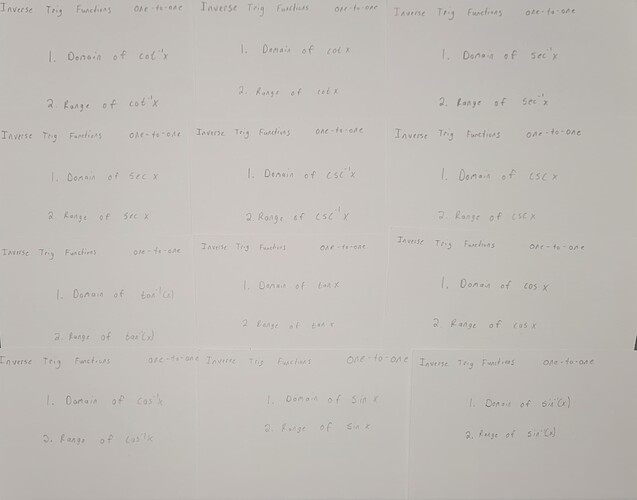 Inverse Trig Functions one-to-one
1. Domain of cot⁻¹x
2. Range of cot⁻¹x
Inverse Trig Functions one-to-one
1. Domain of cot x
2. Range of cot x
Inverse Trig Functions one-to-one
1. Domain of sec⁻¹x
2. Range of sec⁻¹x
Inverse Trig Functions one-to-one
1. Domain of sec x
2 Range of sec x
Inverse Trig Functions one-to-one
1. Domain of csc⁻¹x
2 Range of csc⁻¹x
Inverse Trig Functions one-to-one
1. Domain of csc x
2. Range of csc x
Inverse Trig Functions one-to-one
1. Domain of tan⁻¹(x)
2. Range of tan⁻¹(x)
Inverse Trig Functions one-to-one
1. Domain of tan x
2 Range of tan x
Inverse Trig Functions one-to-one
1. Domain of cos x
2. Range of cos x
Inverse Trig Functions one-to-one
1. Domain of cos⁻¹x
2. Range of cos⁻¹x
Inverse Trig Functions one-to-one
1. Domain of sin x
2. Range of sin x
Inverse Trig Functions one-to-one
1. Domain of sin⁻¹(x)
2. Range of sin⁻¹(x)